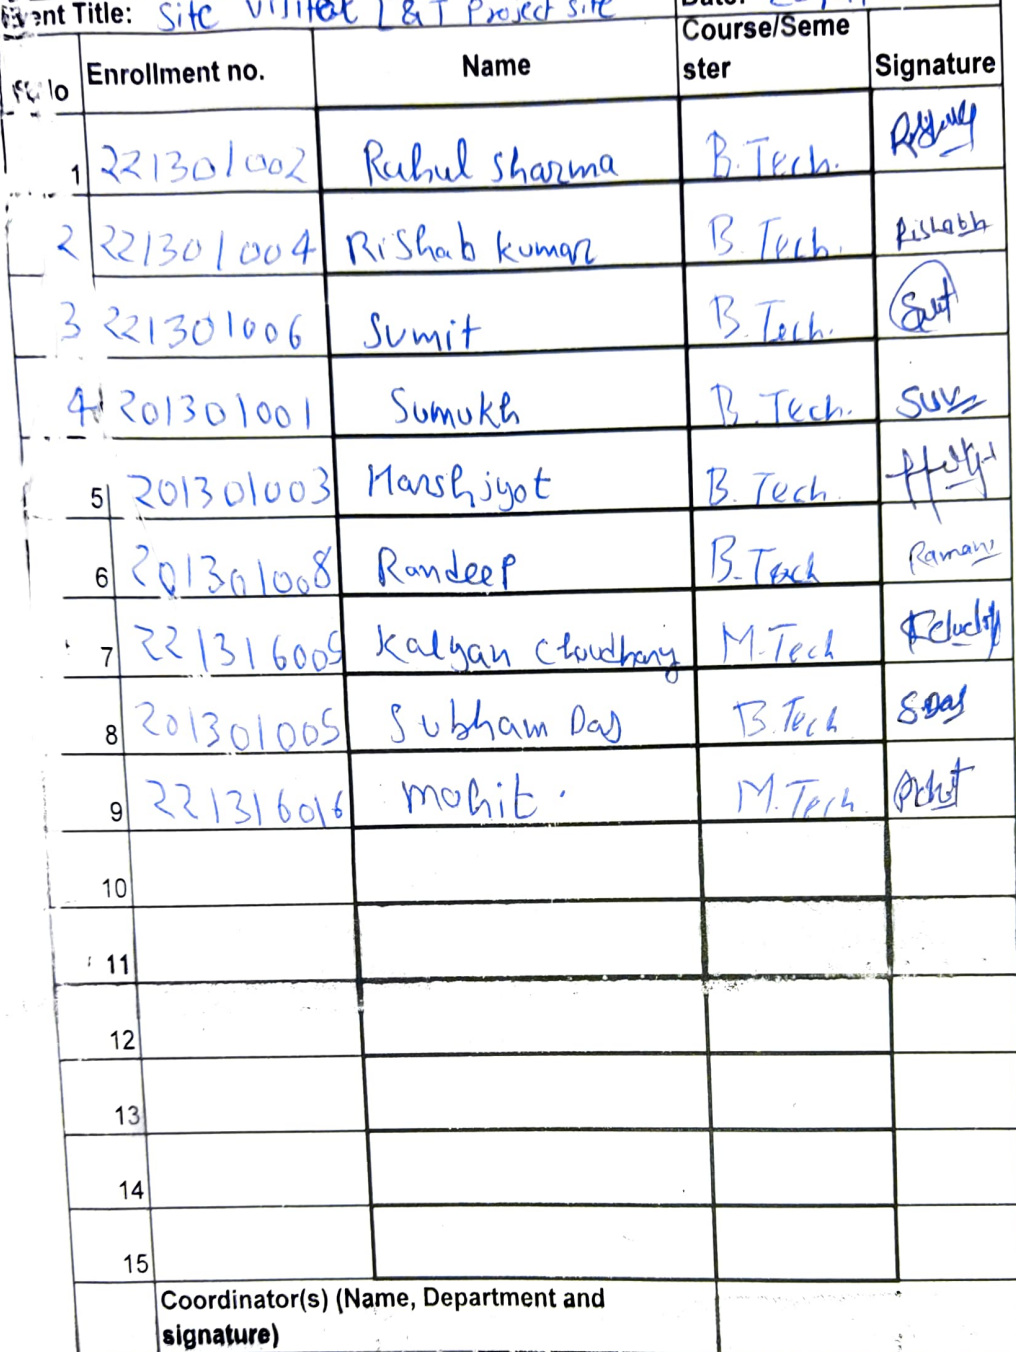 Event Title: Site Visit at L & T Project Site
Enrollment no. Name Course/Seme
ster Signature
1 221301002 Rahul Sharma B.Tech.
2 221301004 Rishab kumar B.Tech. Rishabh
3 221301006 Sumit B.Tech.
4 201301001 Sumukh B.Tech.
5 201301003 Harshjyot B.Tech.
6 201301008 Randeep B.Tech
7 221316005 Kalyan Choudhary M.Tech
8 201301005 Subham Das B.Tech S.Das
9 221316016 mohit. M.Tech
10
11
12
13
14
15
Coordinator(s) (Name, Department and
signature)